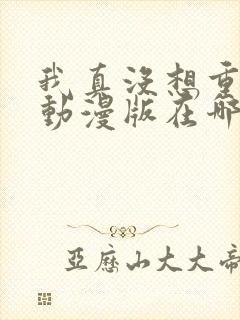 我真沒想重
動漫版在哪
亞歷山大大帝